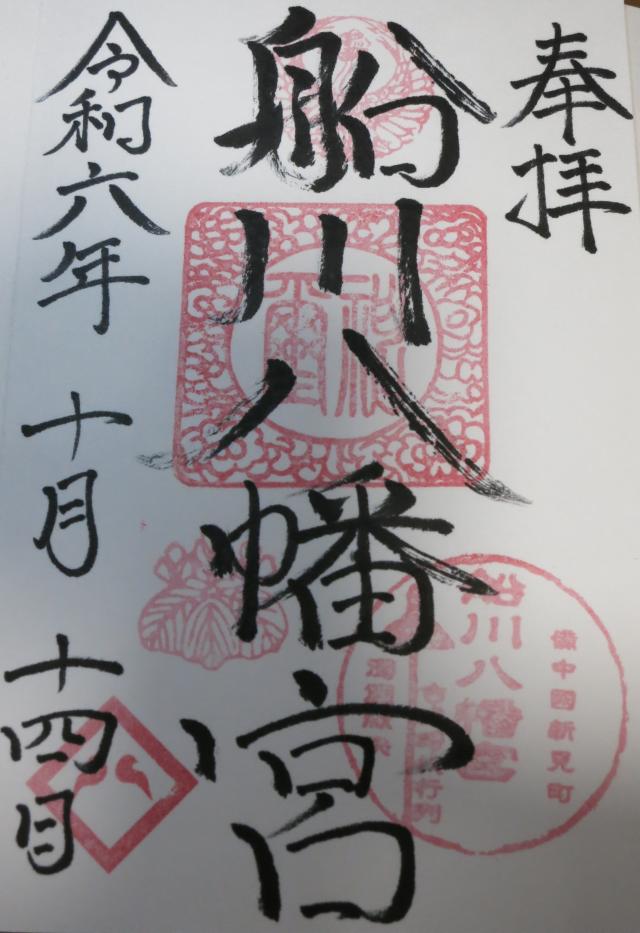 奉拝
船川八幡宮
令和六年 十月 十四日
備中國新見町
船川八幡宮